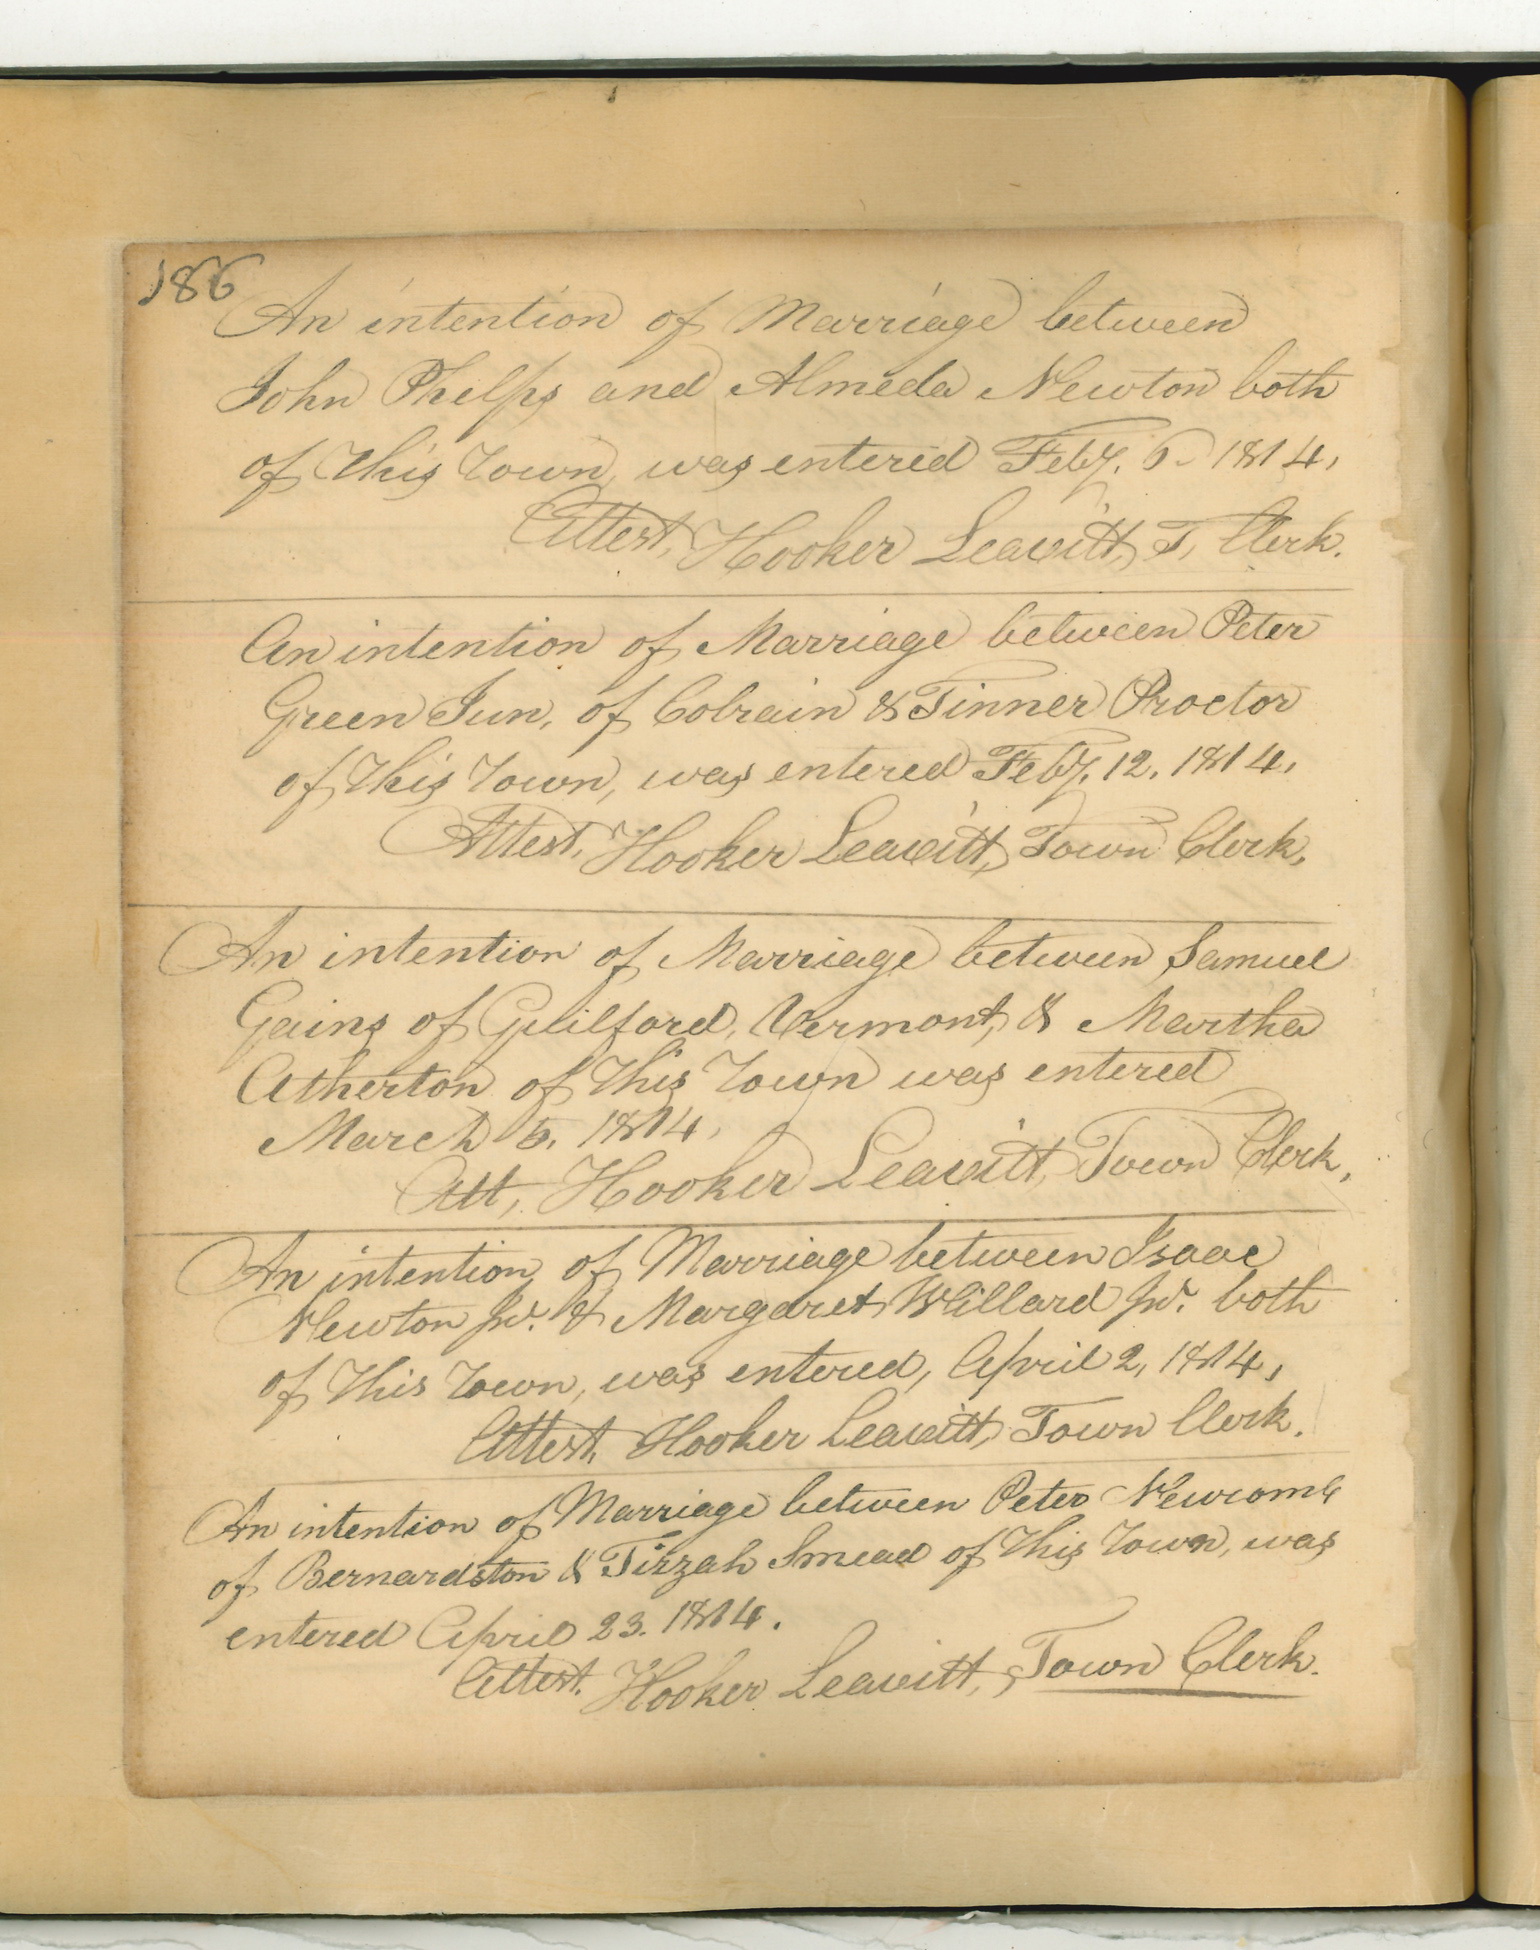 186
An intention of Marriage between
John Phelps and Almeda Newton both
of this Town, was entered Feby. 6. 1814,
Attest, Hooker Leavitt, T, Clerk.
An intention of Marriage between Peter
Green Jun, of Colrain & Tinner Proctor
of this Town, was entered Feby. 12. 1814,
Attest, Hooker Leavitt, Town Clerk,
An intention of Marriage between Samuel
Gains of Guilford, Vermont, & Martha
Atherton of this Town was entered
March 5. 1814,
Att, Hooker Leavitt, Town Clerk,
An intention of Marriage between Isaac
Newton Jr. & Margaret Willard Jr. both
of this Town, was entered, April 2, 1814,
Attest, Hooker Leavitt, Town Clerk.
An intention of Marriage between Peter Newcomb
of Bernardston & Tirzah Smead of this Town, was
entered April 23. 1814.
Attest. Hooker Leavitt, Town Clerk.